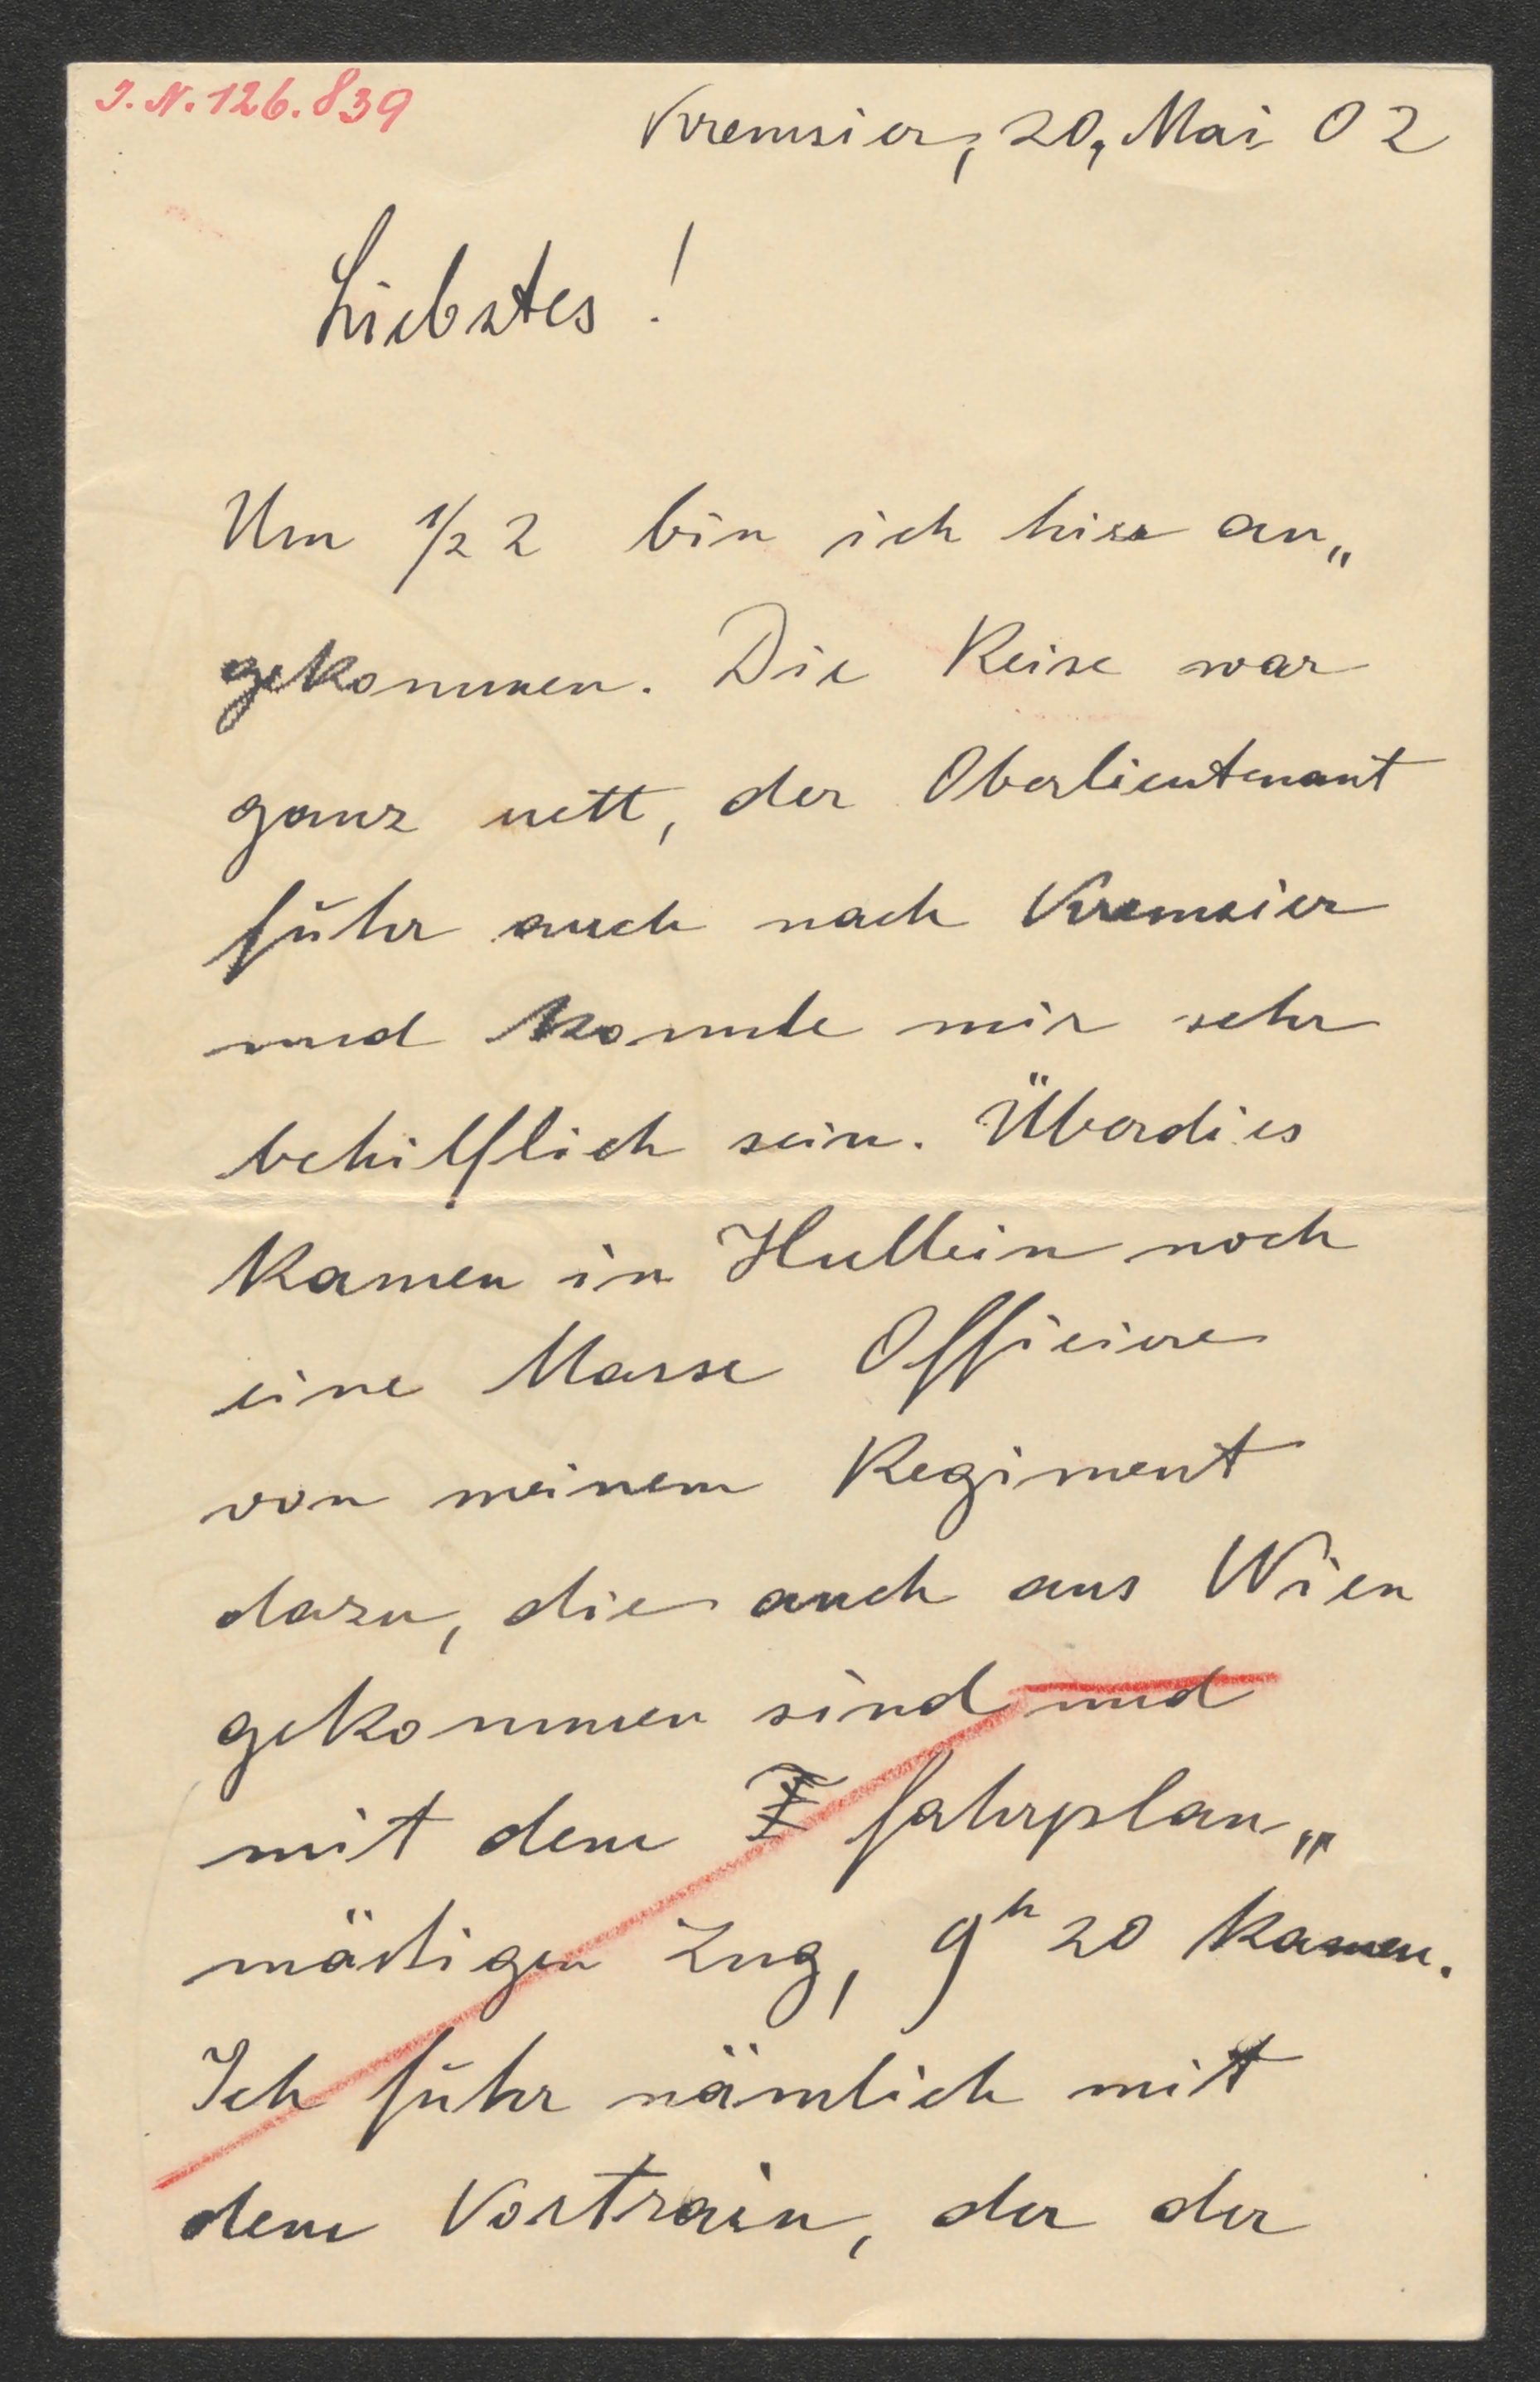 J.N.126.839
Kremsier, 20, Mai 02
Liebstes!
Um ½ 2 bin ich hier an„
gekommen. Die Reise war
ganz nett, der Oberlieutenant
fuhr auch nach Kremsier
und konnte mir sehr
behilflich sein. Überdies
kamen in Hullein noch
eine Masse Officiere
von meinem Regiment
dazu, die auch aus Wien
gekommen sind und
mit dem Z fahrplan„
mäßigen Zug, 9h 20 kamen.
Ich fuhr nämlich mit
dem Vortrain, der der